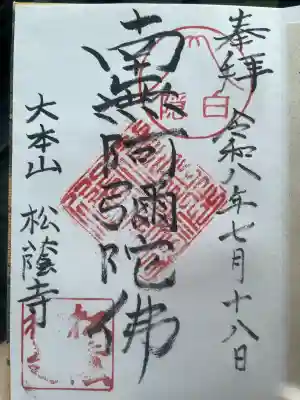 奉拝
令和八年七月十八日
白隠
南無阿彌陀佛
大本山 松蔭寺